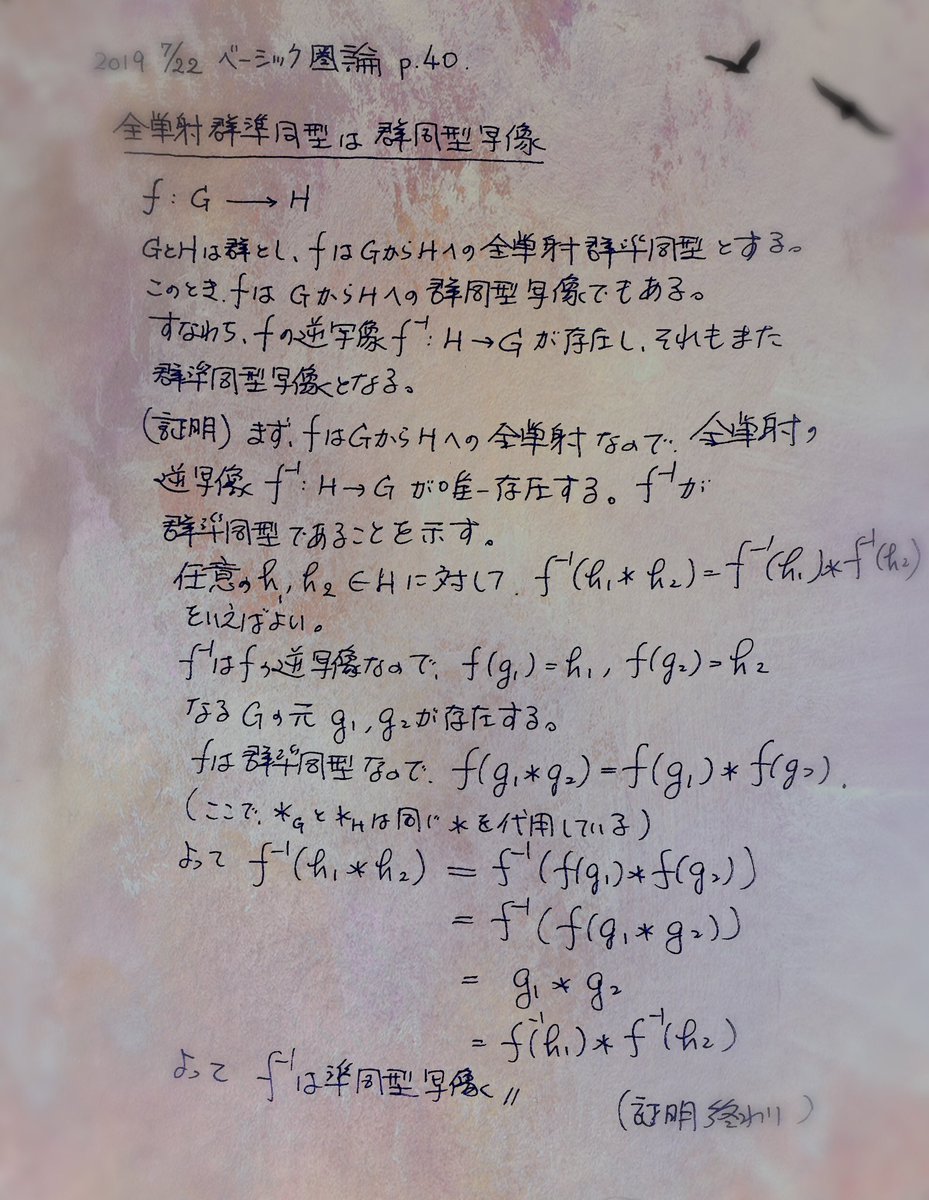 2019 7/22 ベーシック圏論 p.40.
全単射群準同型は群同型写像
f : G ⟶ H
GとHは群とし、fはGからHへの全単射群準同型とする。
このとき、fは GからHへの群同型写像でもある。
すなわち、fの逆写像 f⁻¹ : H → G が存在し、それもまた
群準同型写像となる。
(証明) まず、fはGからHへの全単射なので、全単射の
逆写像 f⁻¹ : H → G が唯一存在する。f⁻¹が
群準同型であることを示す。
任意の h₁, h₂ ∈ H に対して、f⁻¹(h₁ * h₂) = f⁻¹(h₁) * f⁻¹(h₂)
といえばよい。
f⁻¹はfの逆写像なので、f(g₁) = h₁, f(g₂) = h₂
なる Gの元 g₁, g₂が存在する。
fは群準同型なので、f(g₁ * g₂) = f(g₁) * f(g₂).
(ここで、*Gと*Hは同じ * を代用している)
よって f⁻¹(h₁ * h₂) = f⁻¹(f(g₁) * f(g₂))
= f⁻¹(f(g₁ * g₂))
= g₁ * g₂
= f⁻¹(h₁) * f⁻¹(h₂)
よって f⁻¹は準同型写像〃
(証明終わり)